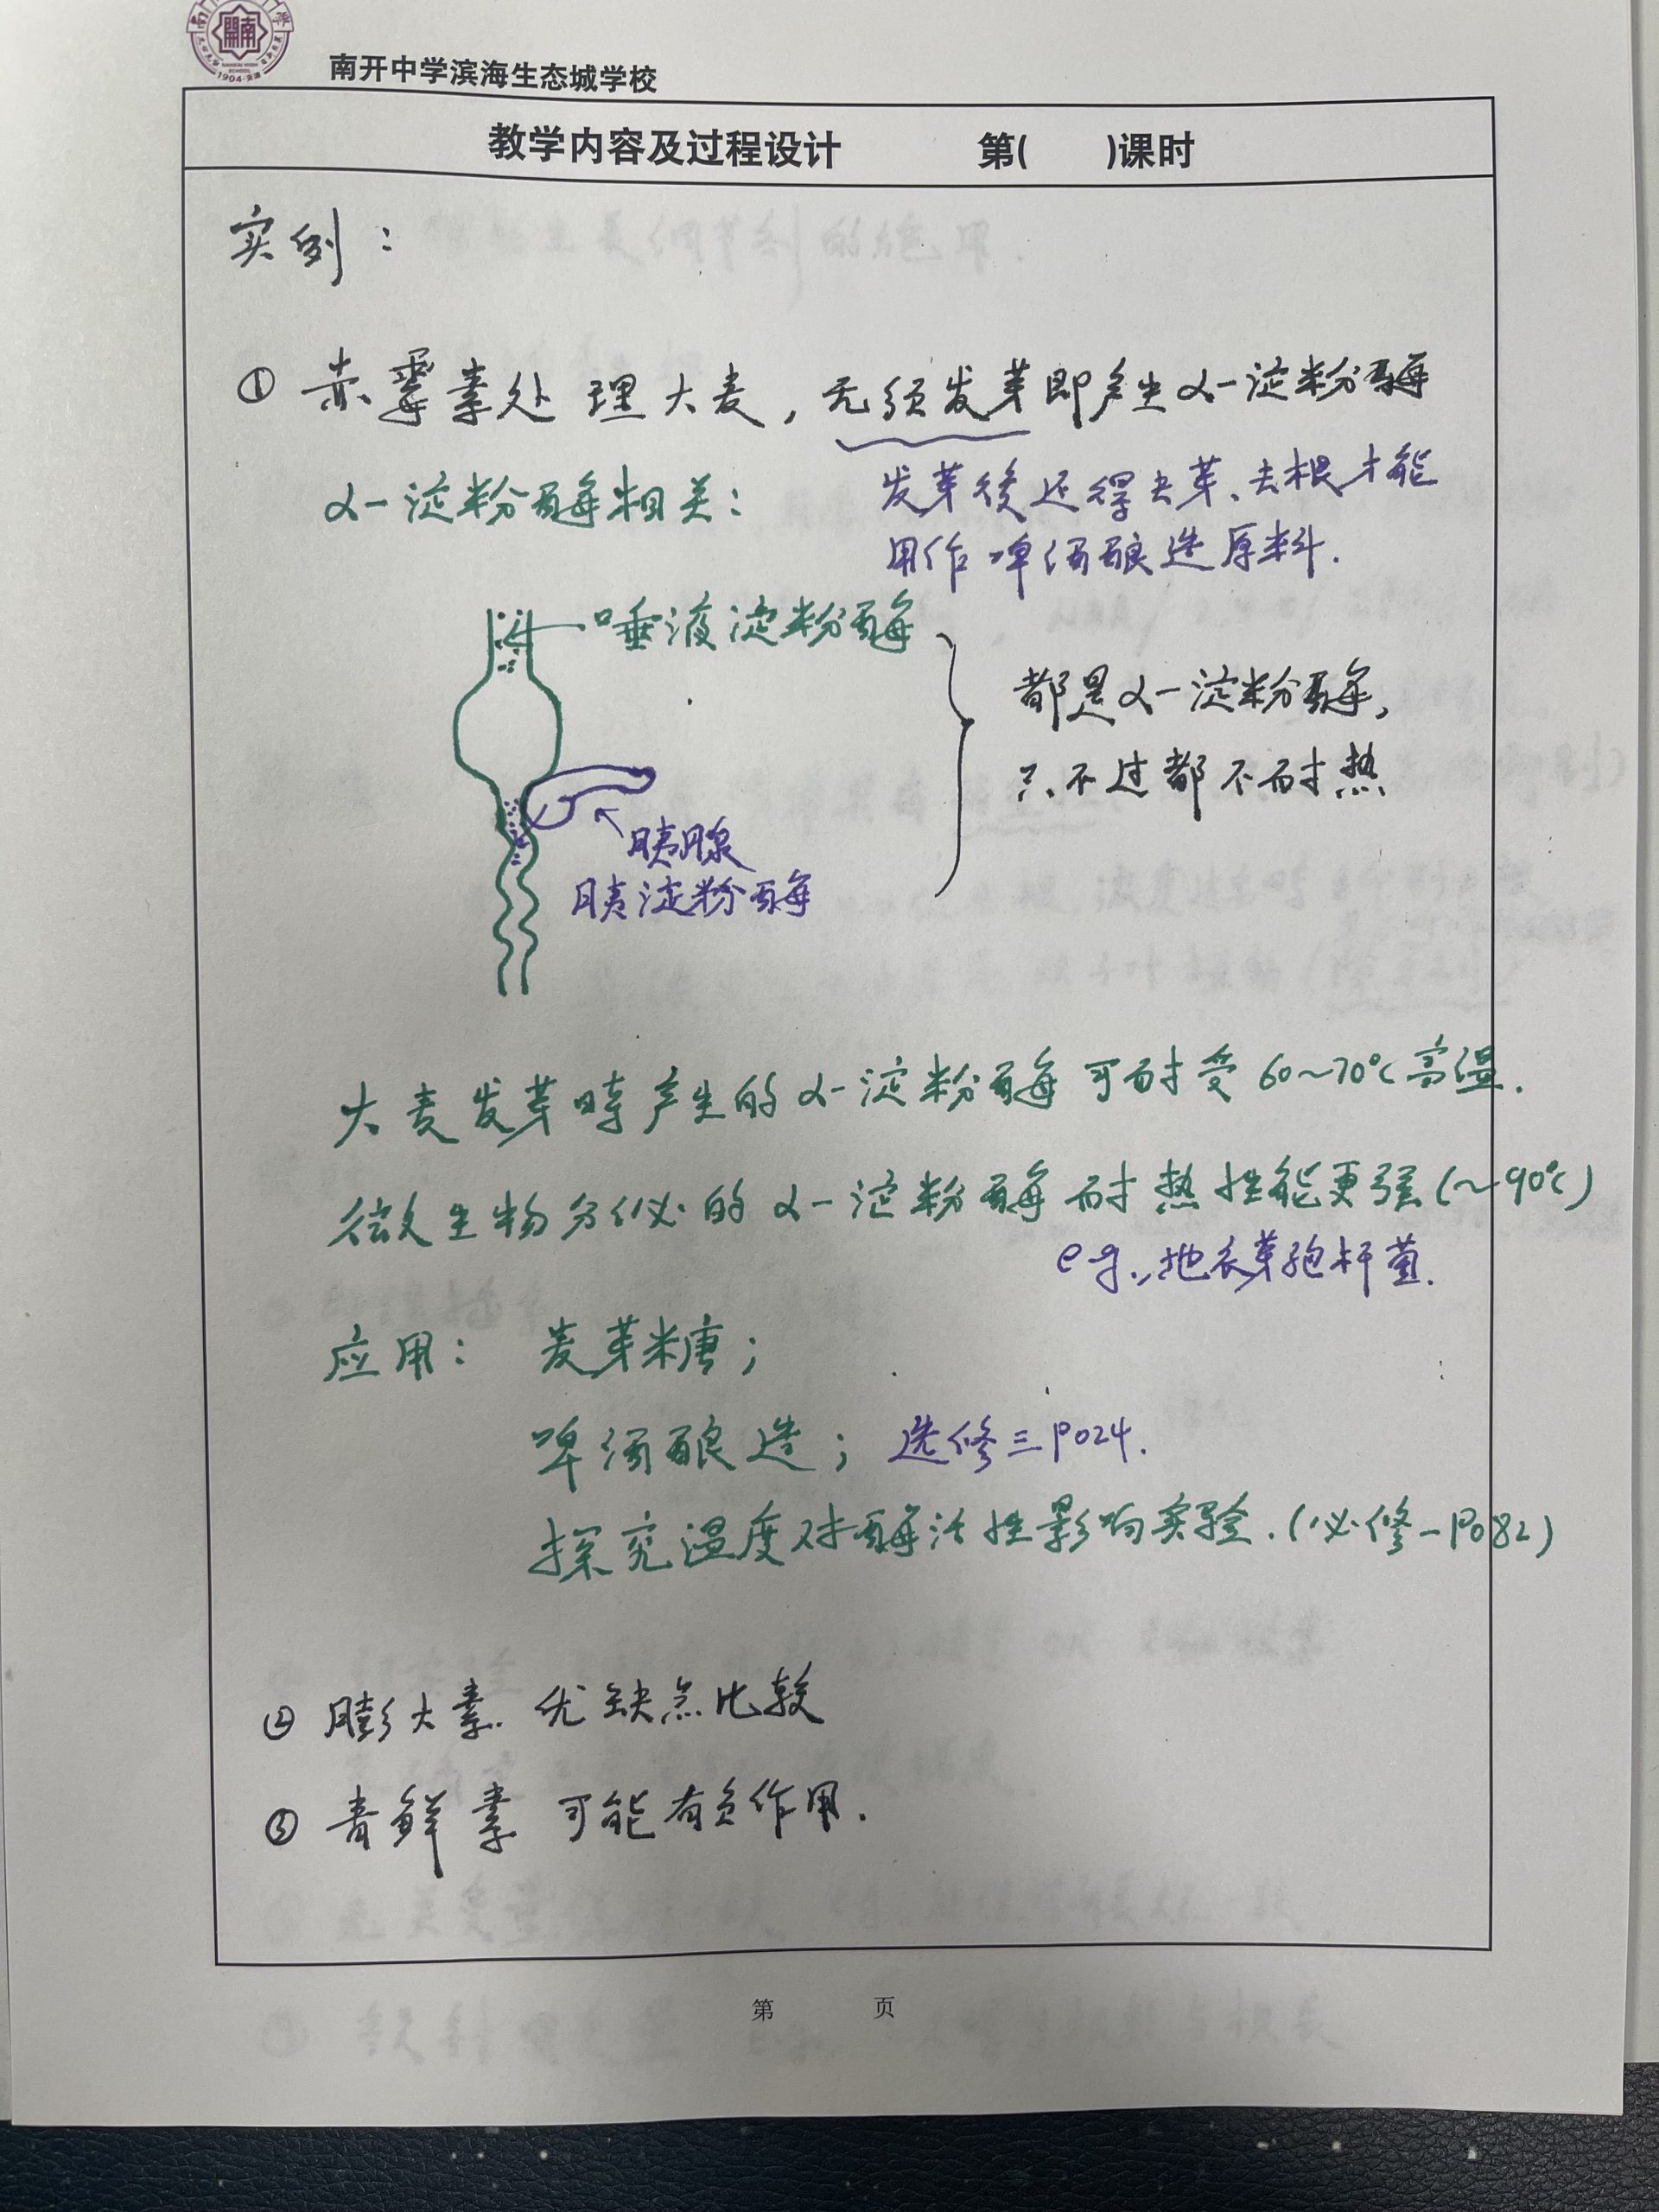 南开中学滨海生态城学校
教学内容及过程设计 第( )课时
实例：
① 赤霉素处理大麦，无须发芽即产生α-淀粉酶
发芽後还得去芽、去根才能
用作啤酒酿造原料.
α-淀粉酶相关：
唾液淀粉酶
胰腺
胰淀粉酶
都是α-淀粉酶，
只不过都不耐热
大麦发芽時产生的α-淀粉酶可耐受60~70℃高温.
微生物分泌的α-淀粉酶耐热性能更强(~90℃)
eg.,地衣芽孢杆菌.
应用：麦芽糖；
啤酒酿造；选修三P024.
探究温度对酶活性影响实验.(必修一P082)
② 膨大素. 优缺点比较
③ 青鲜素 可能有负作用.
第 页